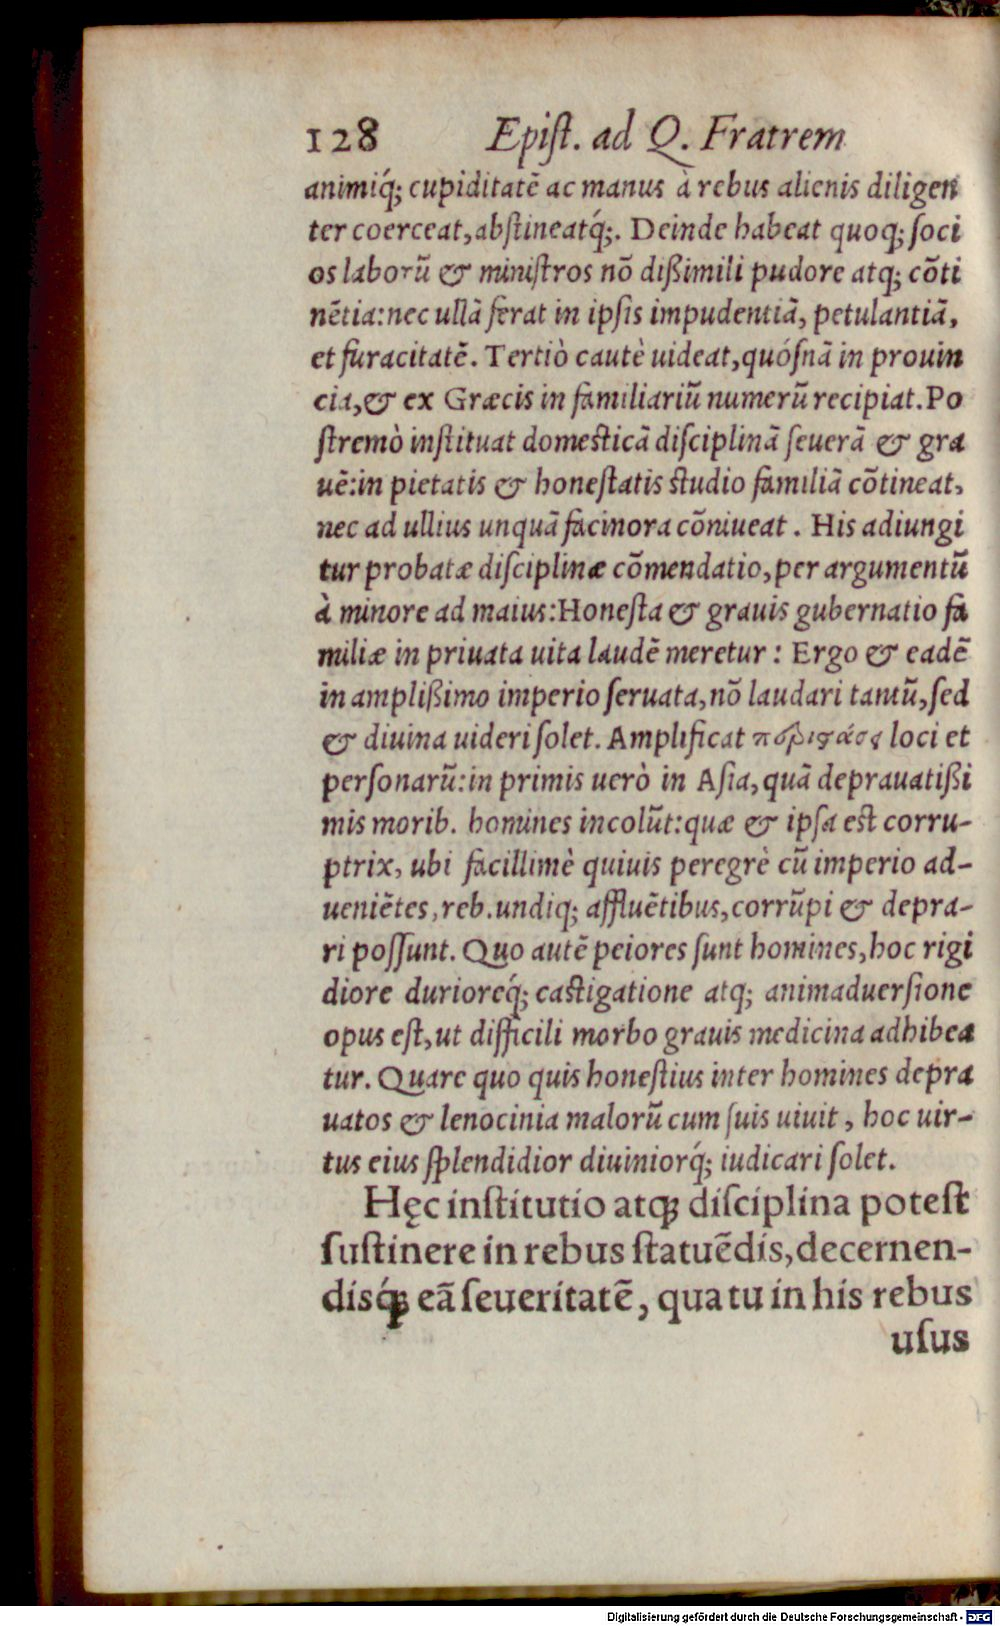 128 Epiſt. ad Q. Fratrem
animiq́; cupiditatē ac manus à rebus alienis diligen
ter coerceat, abſtineatq́;. Deinde habeat quoq; ſoci
os laborū & miniſtros nō dißimili pudore atq; cōti
nētia: nec ullā ferat in ipſis impudentiā, petulantiā,
et furacitatē. Tertiò cautè uideat, quóſnā in prouin
cia, & ex Græcis in familiariū numerū recipiat. Po
ſtremò inſtituat domeſticā diſciplinā ſeuerā & gra
uē: in pietatis & honeſtatis ſtudio familiā cōtineat,
nec ad ullius unquā facinora cōniueat. His adiungi
tur probatæ diſciplinæ cōmendatio, per argumentū
à minore ad maius: Honeſta & grauis gubernatio fa
miliæ in priuata uita laudē meretur: Ergo & eadē
in amplißimo imperio ſeruata, nō laudari tantū, ſed
& diuina uideri ſolet. Amplificat loci et
perſonarū: in primis uerò in Aſia, quā deprauatißi
mis morib. homines incolūt: quæ & ipſa eſt corru-
ptrix, ubi facillimè quiuis peregrè cū imperio ad-
ueniētes, reb. undiq; affluētibus, corrūpi & depra-
ri poſſunt. Quo autē peiores ſunt homines, hoc rigi
diore durioreq́; caſtigatione atq; animaduerſione
opus eſt, ut difficili morbo grauis medicina adhibea
tur. Quare quo quis honeſtius inter homines depra
uatos & lenocinia malorū cum ſuis uiuit, hoc uir-
tus eius ſplendidior diuiniorq́; iudicari ſolet.
Hęc inſtitutio atq; diſciplina poteſt
ſuſtinere in rebus ſtatuēdis, decernen-
disq́; eā ſeueritatē, qua tu in his rebus
uſus
Digitalisierung gefördert durch die Deutsche Forschungsgemeinschaft - DFG